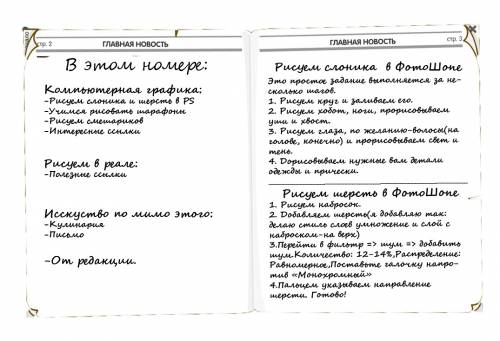 стр. 2
ГЛАВНАЯ НОВОСТЬ
В этом номере:
Компьютерная графика:
-Рисуем слоника и шерсть в PS
-Учимся рисовать шарафоны
-Рисуем смешариков
-Интересные ссылки
Рисуем в реале:
-Полезные ссылки
Исскуство по мимо этого:
-Кулинария
-Письмо
-От редакции.
ГЛАВНАЯ НОВОСТЬ
стр. 3
Рисуем слоника в ФотоШопе
Это простое задание выполняется за не-
сколько шагов.
1. Рисуем круг и заливаем его.
2. Рисуем хобот, ноги, прорисовываем
уши и хвост.
3. Рисуем глаза, по желанию-волосы(на
голове, конечно) и прорисовываем свет и
тень.
4. Дорисовываем нужные вам детали
одежды и прически.
Рисуем шерсть в ФотоШопе
1. Рисуем набросок.
2. Добавляем шерсть(я добавляю так:
делаю стиль слоев умножение и слой с
наброском-на верх)
3.Перейти в фильтр => шум => добавить
шум.Количество: 12-14%,Распределение:
Равномерное,Поставьте галочку напро-
тив «Монохромный»
4.Пальцем указываем направление
шерсти. Готово!